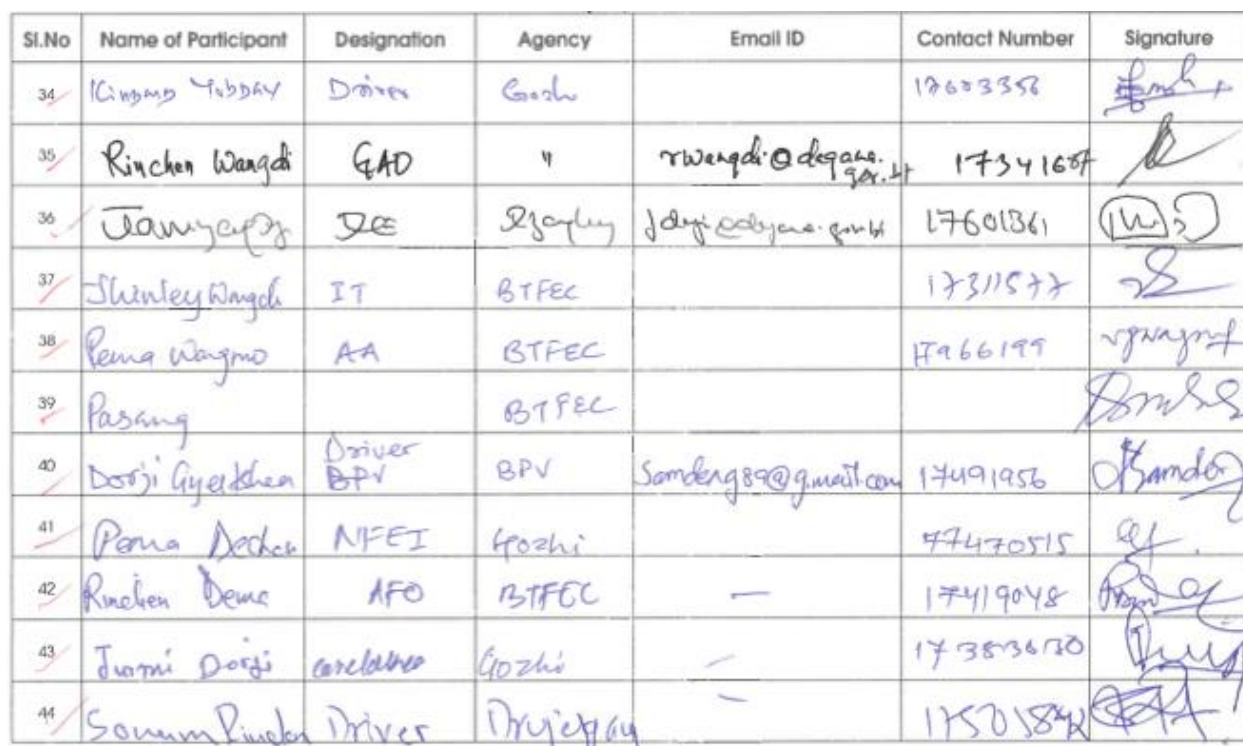 Sl.No Name of Participant Designation Agency Email ID Contact Number Signature
34 Driver Gozhi 17603356
35 Rinchen Wangdi GAO " rwangdi@dagana.gov.bt 1734165
36 DE 17601361
37 Thinley Wangdi IT BTFEC 17311577
38 Pema Wangmo AA BTFEC 17966199
39 Pasang BTFEC
40 Dorji Gyeltshen Driver BPV BPV Samdeng89@gmail.com 17491956
41 Pema Dechen NFEI Gozhi 77470515
42 Rinchen Dema AFO BTFEC — 17419048
43 Jurmi Dorji caretaker Gozhi –
44 Sonam Rinchen Driver –